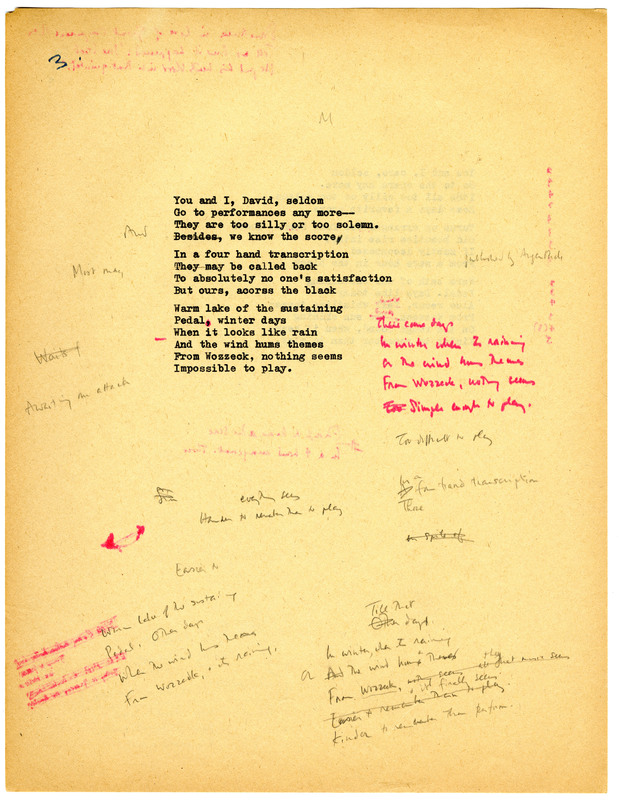 3.
And
You and I, David, seldom
Go to performances any more--
They are too silly or too solemn.
Besides, we know the score,
In a four hand transcription
They may be called back
To absolutely no one's satisfaction
But ours, acorss the black
Warm lake of the sustaining
Pedal, winter days
When it looks like rain
And the wind hums themes
From Wozzeck, nothing seems
Impossible to play.
Most may
published by
Awaiting an attack
There come days
In winter when It's raining
Or the wind hums themes
From Wozzeck, nothing seems
Too Simple enough to play.
Too difficult to play
four hand transcription
Those
in spite of
everything seems
Harder to remember than to play
Easier to
Warm lake of the sustaining
Pedal, Other days
When the wind hums themes
From Wozzeck, or it's raining,
Till that
Other days
In winter, when It's raining
Or And the wind hums Themes
From Wozzeck, nothing seems
it finally seems
Easier to remember than to play
Kinder to remember than perform.